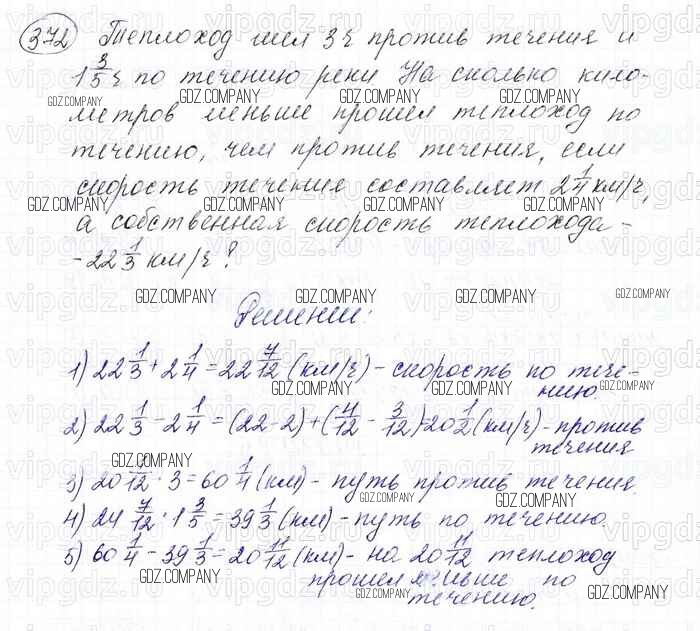 372 Теплоход шел 3ч против течения и
1 3/5 ч по течению реки На сколько кило-
метров меньше прошел теплоход по
течению, чем против течения, если
скорость течения составляет 2 1/4 км/ч,
а собственная скорость теплохода -
- 22 1/3 км/ч?
Решение:
1) 22 1/3 + 2 1/4 = 22 7/12 (км/ч) - скорость по тече-
нию.
2) 22 1/3 - 2 1/4 = (22-2) + (4/12 - 3/12) = 20 1/2 (км/ч) - против
течения
3) 20 /12 · 3 = 60 1/4 (км) - путь против течения.
4) 24 7/12 · 1 3/5 = 39 1/3 (км) - путь по течению.
5) 60 1/4 - 39 1/3 = 20 11/12 (км) - на 20 11/12 теплоход
прошел меньше по
течению.
GDZ.COMPANY
vipgdz.ru